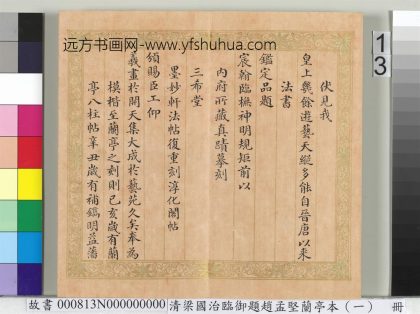 远方书画网-www.yfshuhua.com
伏見我
皇上幾餘遊藝天縱多能自晉唐以來
法書
鑑定品題
宸翰臨橅神明規矩前以
内府所藏真蹟摹刻
三希堂
墨妙軒法帖復重刻淳化閣帖
頒賜臣工仰
羲畫於開天集大成於藝苑久矣奉為
模楷至蘭亭之刻則己亥歲有蘭
亭八柱帖辛丑歲有補戲鴻益藩
13
故書 000813N000000000 清梁國治臨御題趙孟堅蘭亭本 (一) 冊